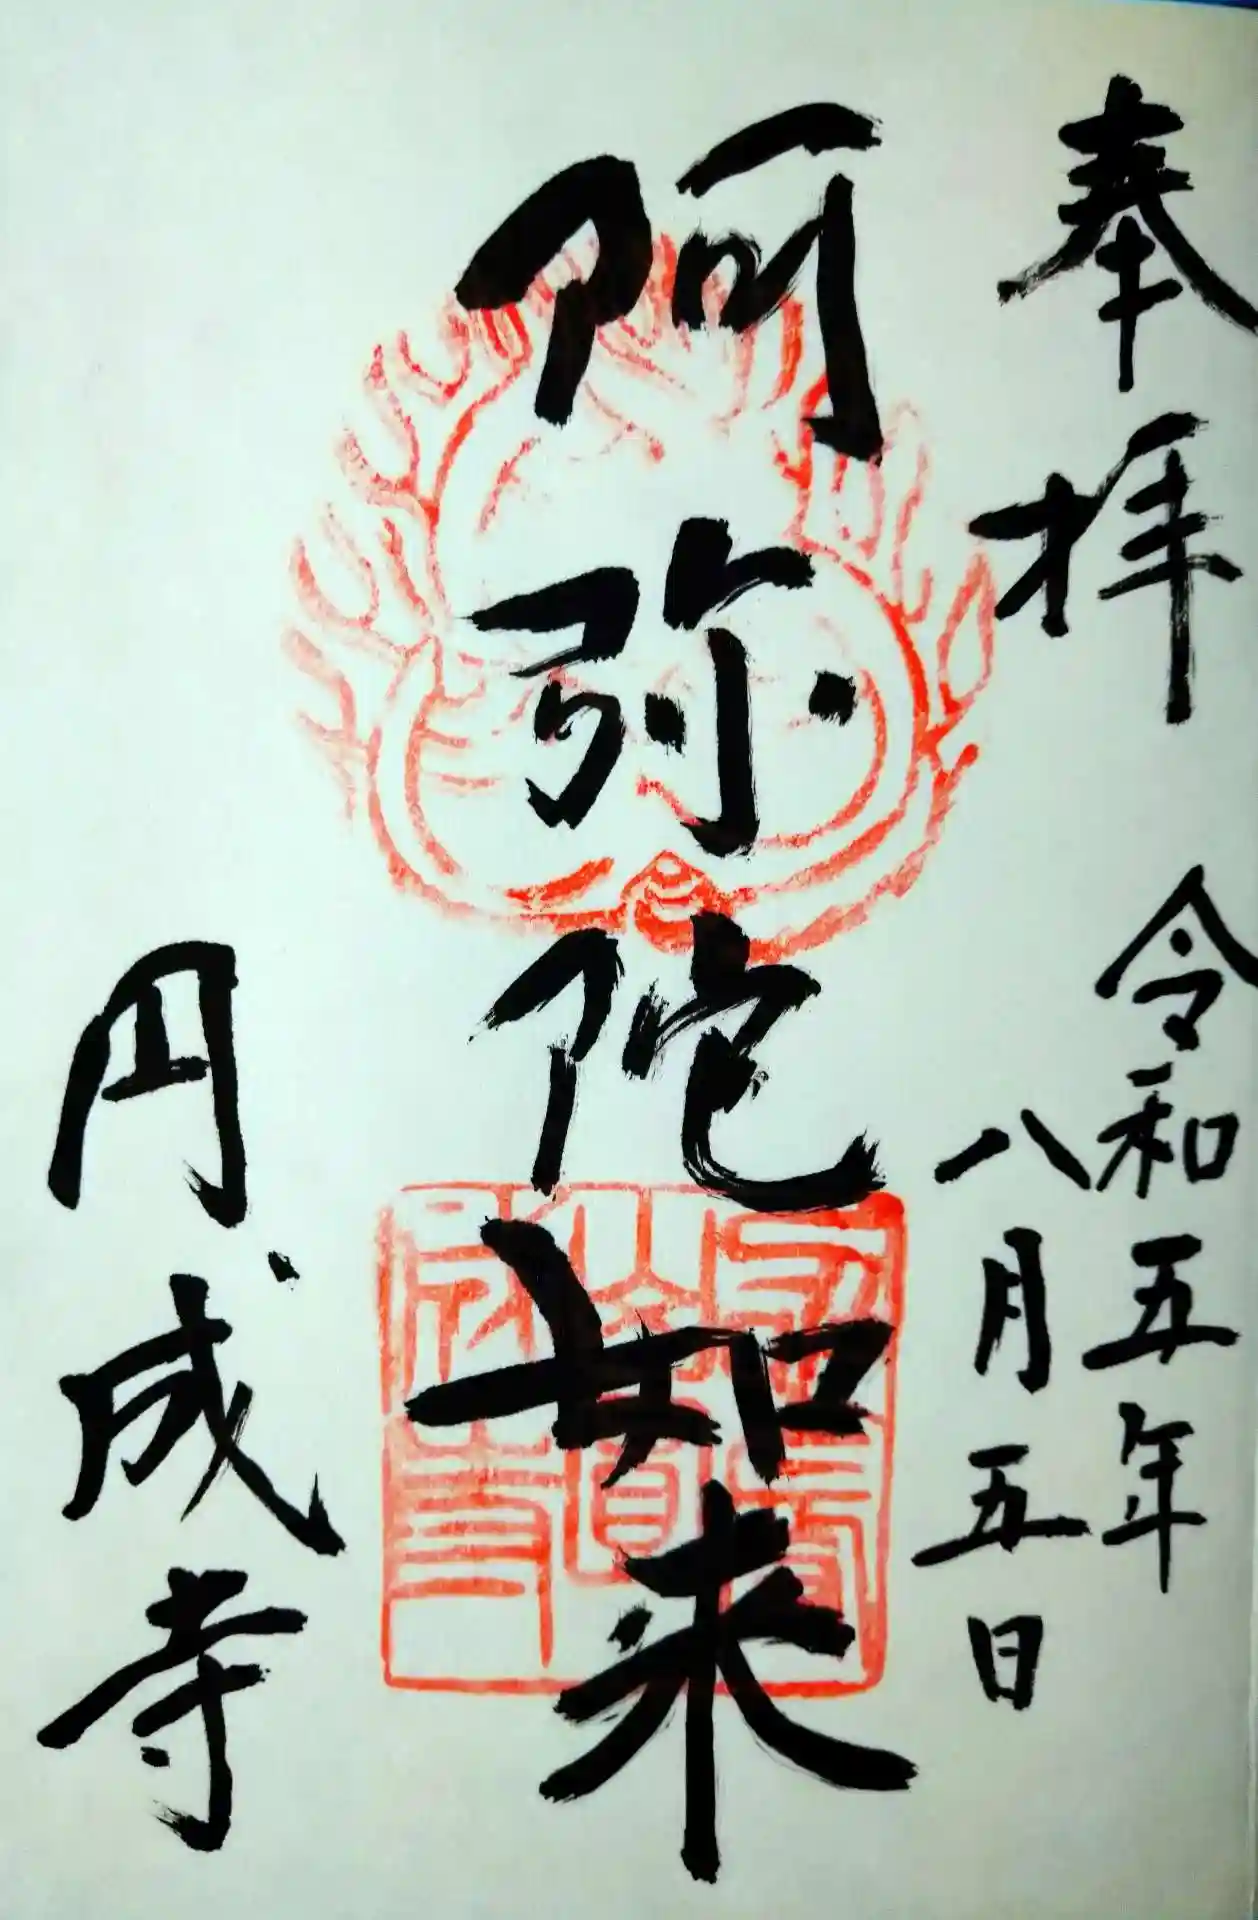 奉拝
令和五年
八月五日
阿弥陀如来
円成寺